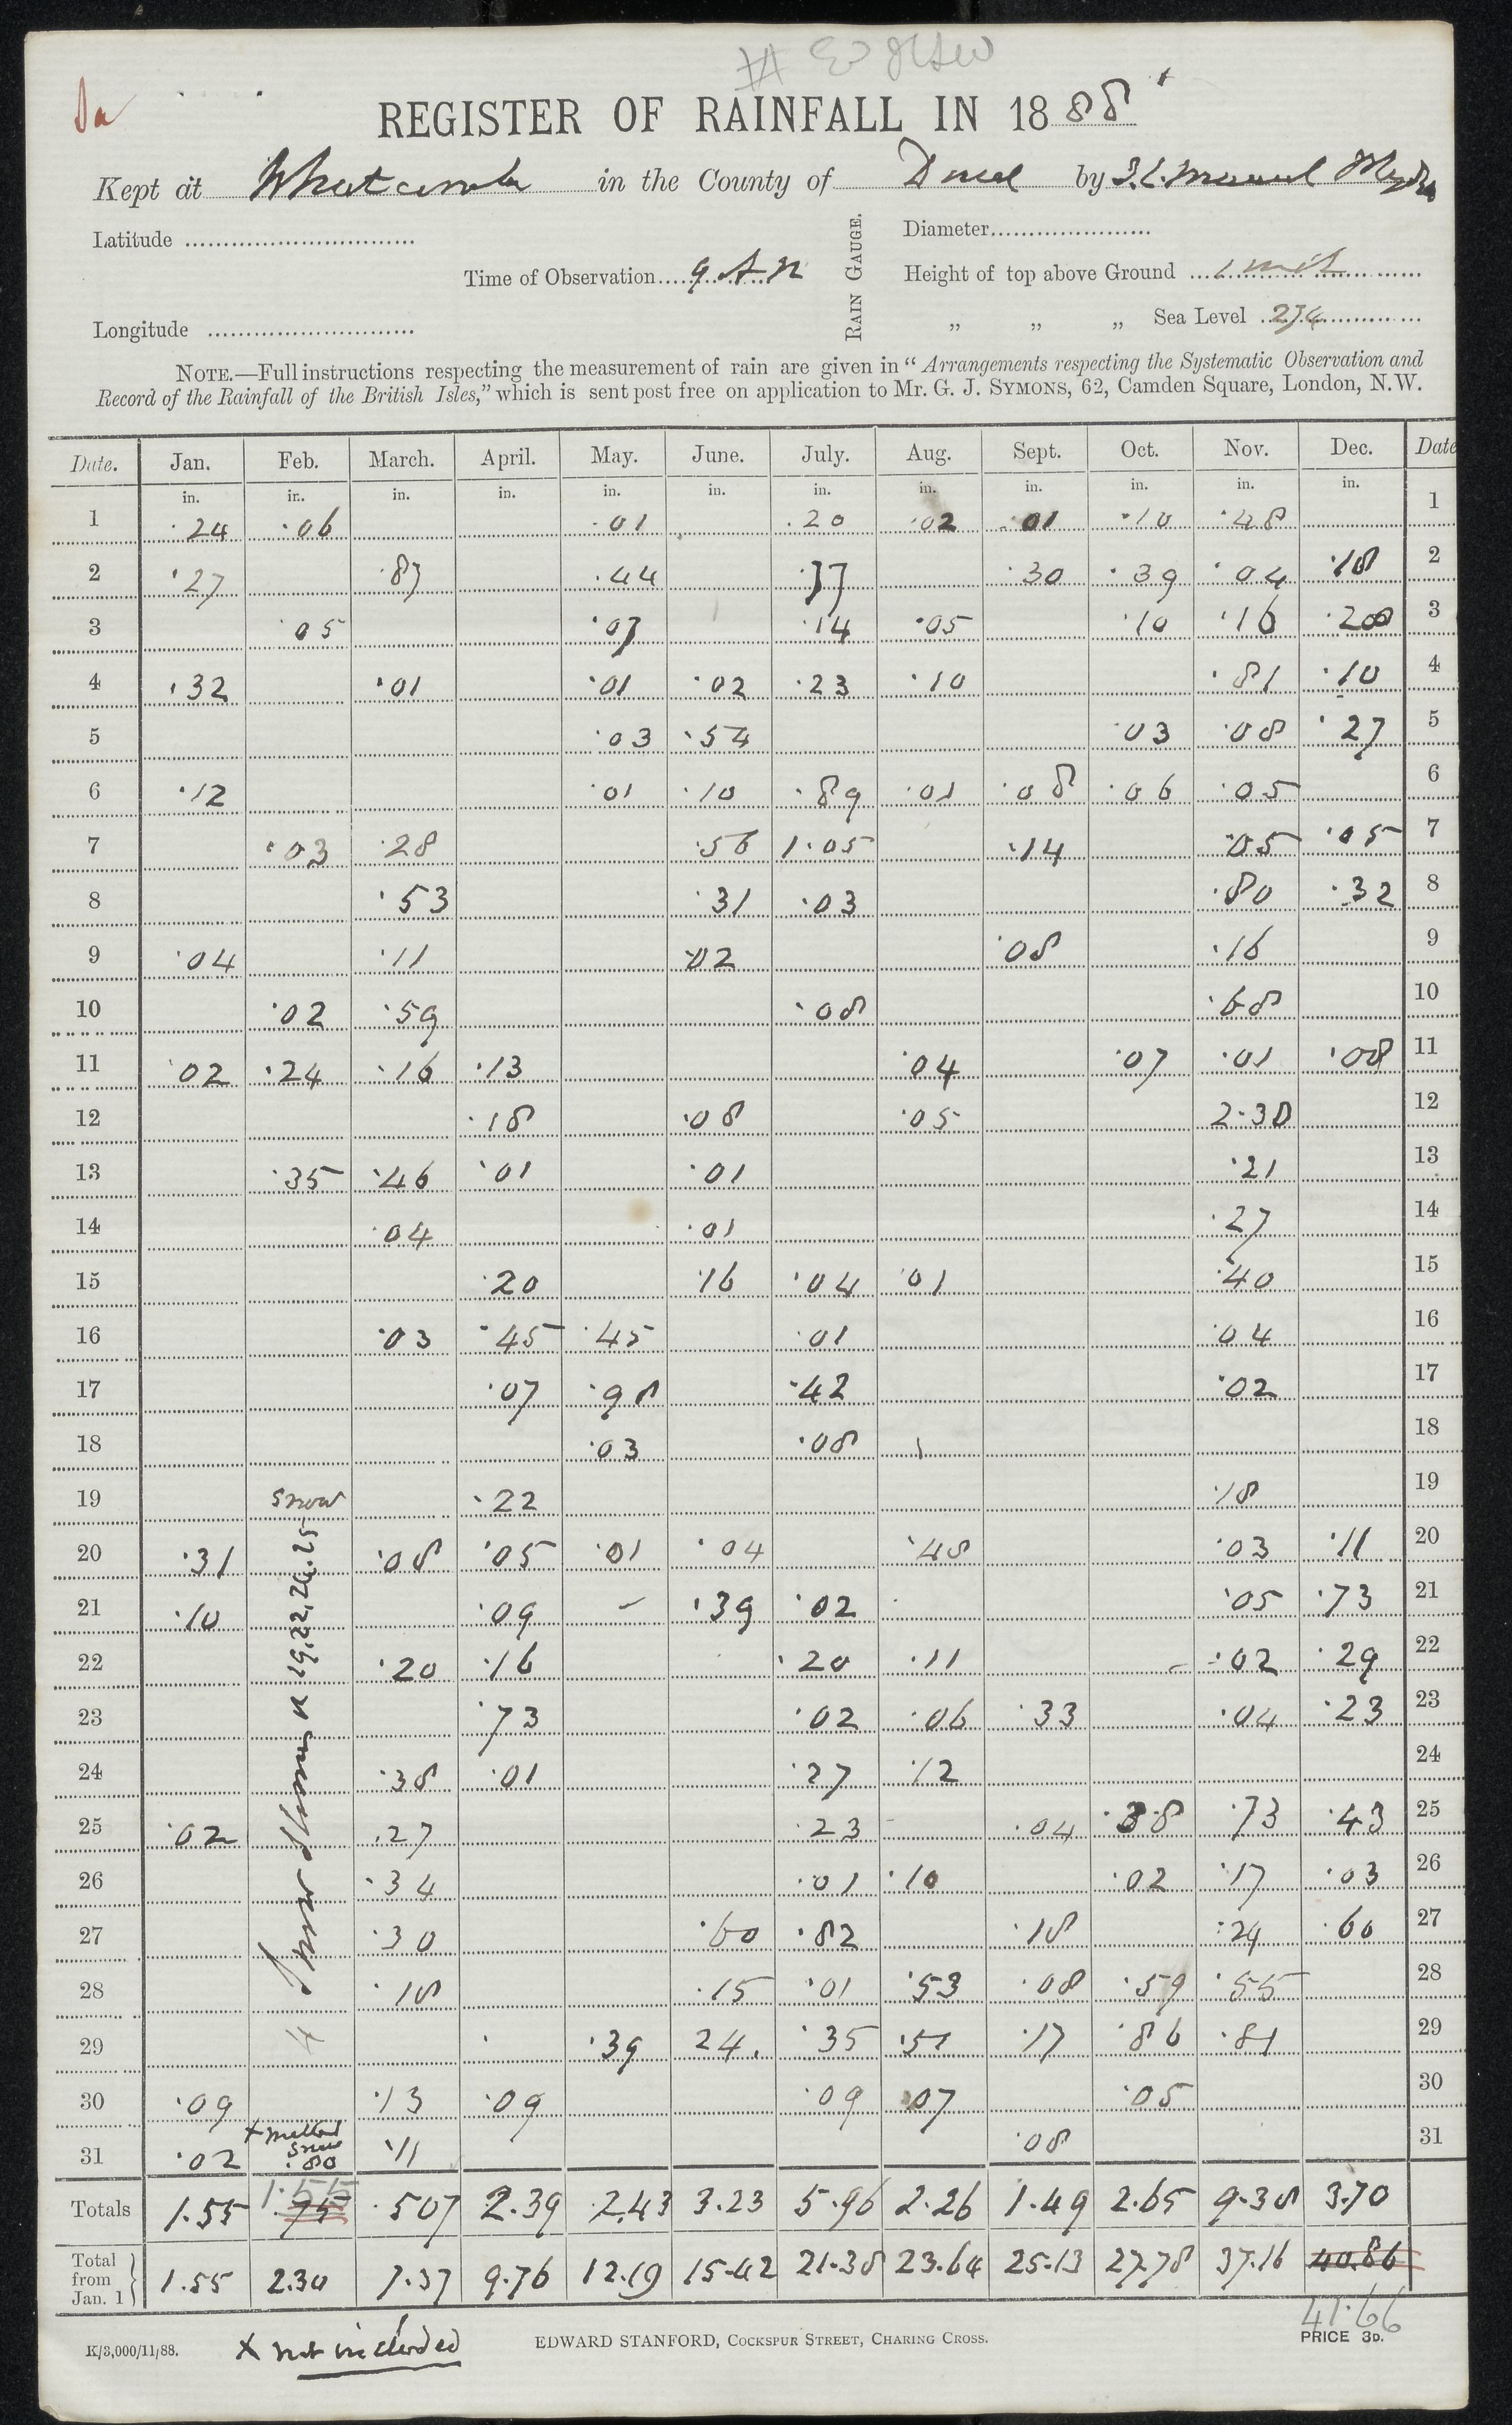 REGISTER OF RAINFALL IN 1888
Kept at Whatcombe in the County of Dorset by
Latitude
Diameter
Time of Observation 9 A M
RAIN GAUGE.
Height of top above Ground 1 inch
Longitude
„ „ „ Sea Level 274
NOTE.—Full instructions respecting the measurement of rain are given in "Arrangements respecting the Systematic Observation and
Record of the Rainfall of the British Isles," which is sent post free on application to Mr. G. J. SYMONS, 62, Camden Square, London, N.W.
Date. Jan. Feb. March. April. May. June. July. Aug. Sept. Oct. Nov. Dec. Date
in. in. in. in. in. in. in. in. in. in. in. in.
1 .24 .06 .01 .20 .02 .01 .10 .48 1
2 .27 .87 .44 .37 .30 .39 .04 .18 2
3 .05 .07 .14 .05 .10 .16 .20 3
4 .32 .01 .01 .02 .23 .10 .81 .10 4
5 .03 .54 .03 .08 .27 5
6 .12 .01 .10 .89 .01 .08 .06 .05 6
7 .03 .28 .56 1.05 .14 .05 .05 7
8 .53 .31 .03 .80 .32 8
9 .04 .11 .02 .08 .16 9
10 .02 .59 .08 .68 10
11 .02 .24 .16 .13 .04 .07 .01 .08 11
12 .18 .08 .05 2.30 12
13 .35 .46 .01 .01 .21 13
14 .04 .01 .27 14
15 .20 .16 .04 .01 .40 15
16 .03 .45 .45 .01 .04 16
17 .07 .98 .42 .02 17
18 .03 .08 18
19 snow .22 .18 19
20 .31 .08 .05 .01 .04 .48 .03 .11 20
21 .10 .09 – .39 .02 .05 .73 21
22 .20 .16 .20 .11 – .02 .29 22
23 .73 .02 .06 .33 .04 .23 23
24 .38 .01 .27 .12 24
25 .02 .27 .23 .04 .38 .73 .43 25
26 .34 .01 .10 .02 .17 .03 26
27 .30 .60 .82 .18 .24 .60 27
28 .18 .15 .01 .53 .08 .59 .55 28
29 .39 24. .35 .51 .17 .86 .81 29
30 .09 .13 .09 .09 .07 .05 30
31 .02 .11 .08 31
Snow Storms 19, 22, 24, 25
4
+ melted
snow
.80
Totals 1.55 1.55 .75 .507 2.39 2.43 3.23 5.96 2.26 1.49 2.65 9.38 3.70
Total from Jan. 1 1.55 2.30 7.37 9.76 12.19 15.42 21.38 23.64 25.13 27.78 37.16 40.86
41.66
K/3,000/11/88.
x not included
EDWARD STANFORD, COCKSPUR STREET, CHARING CROSS.
PRICE 3D.